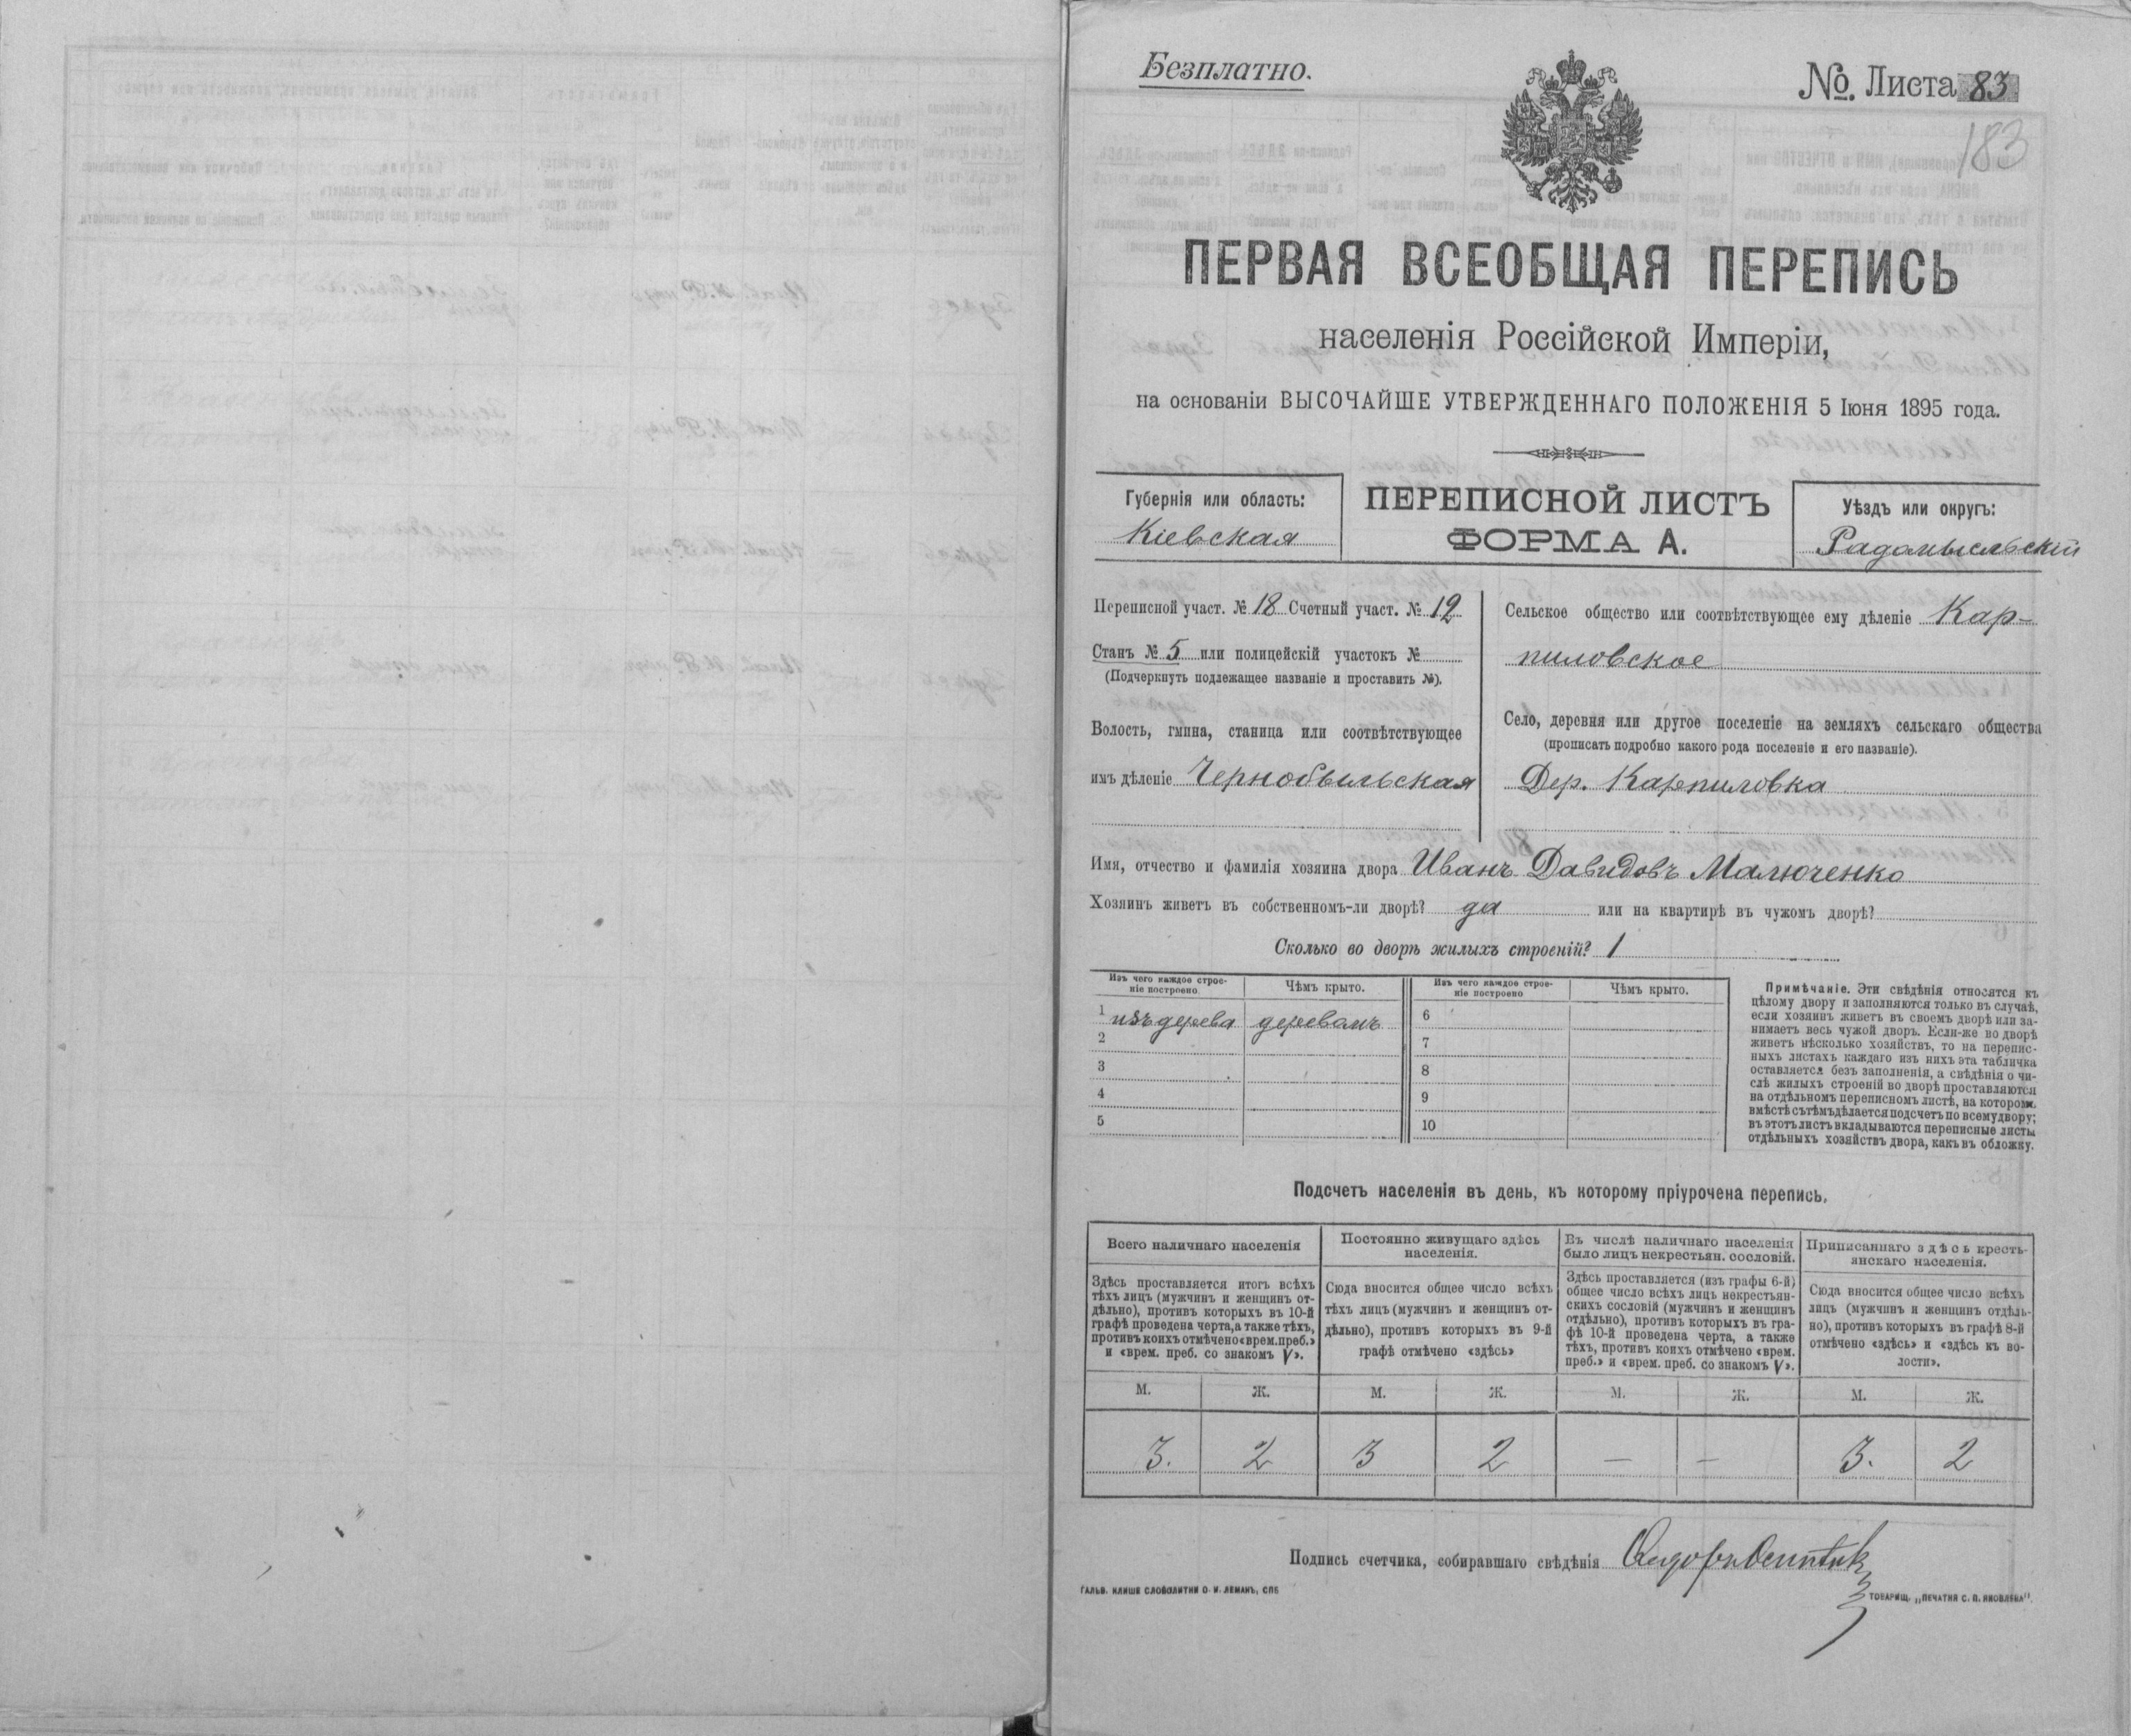 Безплатно.
№. Листа 83
183
ПЕРВАЯ ВСЕОБЩАЯ ПЕРЕПИСЬ
населенія Россійской Имперіи,
на основаніи ВЫСОЧАЙШЕ УТВЕРЖДЕННАГО ПОЛОЖЕНІЯ 5 Іюня 1895 года.
Губернія или область:
Кіевская
ПЕРЕПИСНОЙ ЛИСТЪ
ФОРМА А.
Уѣздъ или округъ:
Радомысльскій
Переписной участ. № 18 Счетный участ. № 12
Станъ № 5 или полицейскій участокъ №
(Подчеркнуть подлежащее названіе и проставить №).
Волость, гмина, станица или соотвѣтствующее
имъ дѣленіе Чернобыльская
Сельское общество или соотвѣтствующее ему дѣленіе Кар-
пиловское
Село, деревня или другое поселеніе на земляхъ сельскаго общества
(прописать подробно какого рода поселеніе и его названіе).
Дер. Карпиловка
Имя, отчество и фамилія хозяина двора Иванъ Давидовъ Малюченко
Хозяинъ живетъ въ собственномъ-ли дворѣ? да или на квартирѣ въ чужомъ дворѣ?
Сколько во дворѣ жилыхъ строеній? 1
Изъ чего каждое строе-
ніе построено.
Чѣмъ крыто.
Изъ чего каждое строе-
ніе построено
Чѣмъ крыто.
1 изъ дерева деревомъ 6
2 7
3 8
4 9
5 10
Примѣчаніе. Эти свѣдѣнія относятся къ
цѣлому двору и заполняются только въ случаѣ,
если хозяинъ живетъ въ своемъ дворѣ или за-
нимаетъ весь чужой дворъ. Если-же во дворѣ
живетъ нѣсколько хозяйствъ, то на перепис-
ныхъ листахъ каждаго изъ нихъ эта табличка
оставляется безъ заполненія, а свѣдѣнія о чи-
слѣ жилыхъ строеній во дворѣ проставляются
на отдѣльномъ переписномъ листѣ, на которомъ
вмѣстѣ съ тѣмъ дѣлается подсчетъ по всему двору;
въ этотъ листъ вкладываются переписные листы
отдѣльныхъ хозяйствъ двора, какъ въ обложку.
Подсчетъ населенія въ день, къ которому пріурочена перепись.
Всего наличнаго населенія
Здѣсь проставляется итогъ всѣхъ
тѣхъ лицъ (мужчинъ и женщинъ от-
дѣльно), противъ которыхъ въ 10-й
графѣ проведена черта, а также тѣхъ,
противъ коихъ отмѣчено «врем. преб.»
и «врем. преб. со знакомъ V».
Постоянно живущаго здѣсь
населенія.
Сюда вносится общее число всѣхъ
тѣхъ лицъ (мужчинъ и женщинъ от-
дѣльно), противъ которыхъ въ 9-й
графѣ отмѣчено «здѣсь»
Въ числѣ наличнаго населенія
было лицъ некрестьян. сословій.
Здѣсь проставляется (изъ графы 6-й)
общее число всѣхъ лицъ некрестьян-
скихъ сословій (мужчинъ и женщинъ
отдѣльно), противъ которыхъ въ гра-
фѣ 10-й проведена черта, а также
тѣхъ, противъ коихъ отмѣчено «врем.
преб.» и «врем. преб. со знакомъ V».
Приписаннаго здѣсь кресть-
янскаго населенія.
Сюда вносится общее число всѣхъ
лицъ (мужчинъ и женщинъ отдѣль-
но), противъ которыхъ въ графѣ 8-й
отмѣчено «здѣсь» и «здѣсь къ во-
лости».
М. Ж. М. Ж. М. Ж. М. Ж.
3. 2 3 2 — — 3. 2
Подпись счетчика, собиравшаго свѣдѣнія
ГАЛЬВ. КЛИШЕ СЛОВОЛИТНИ О. И. ЛЕМАНЪ, СПБ
ТОВАРИЩ. „ПЕЧАТНЯ С. П. ЯКОВЛЕВА".